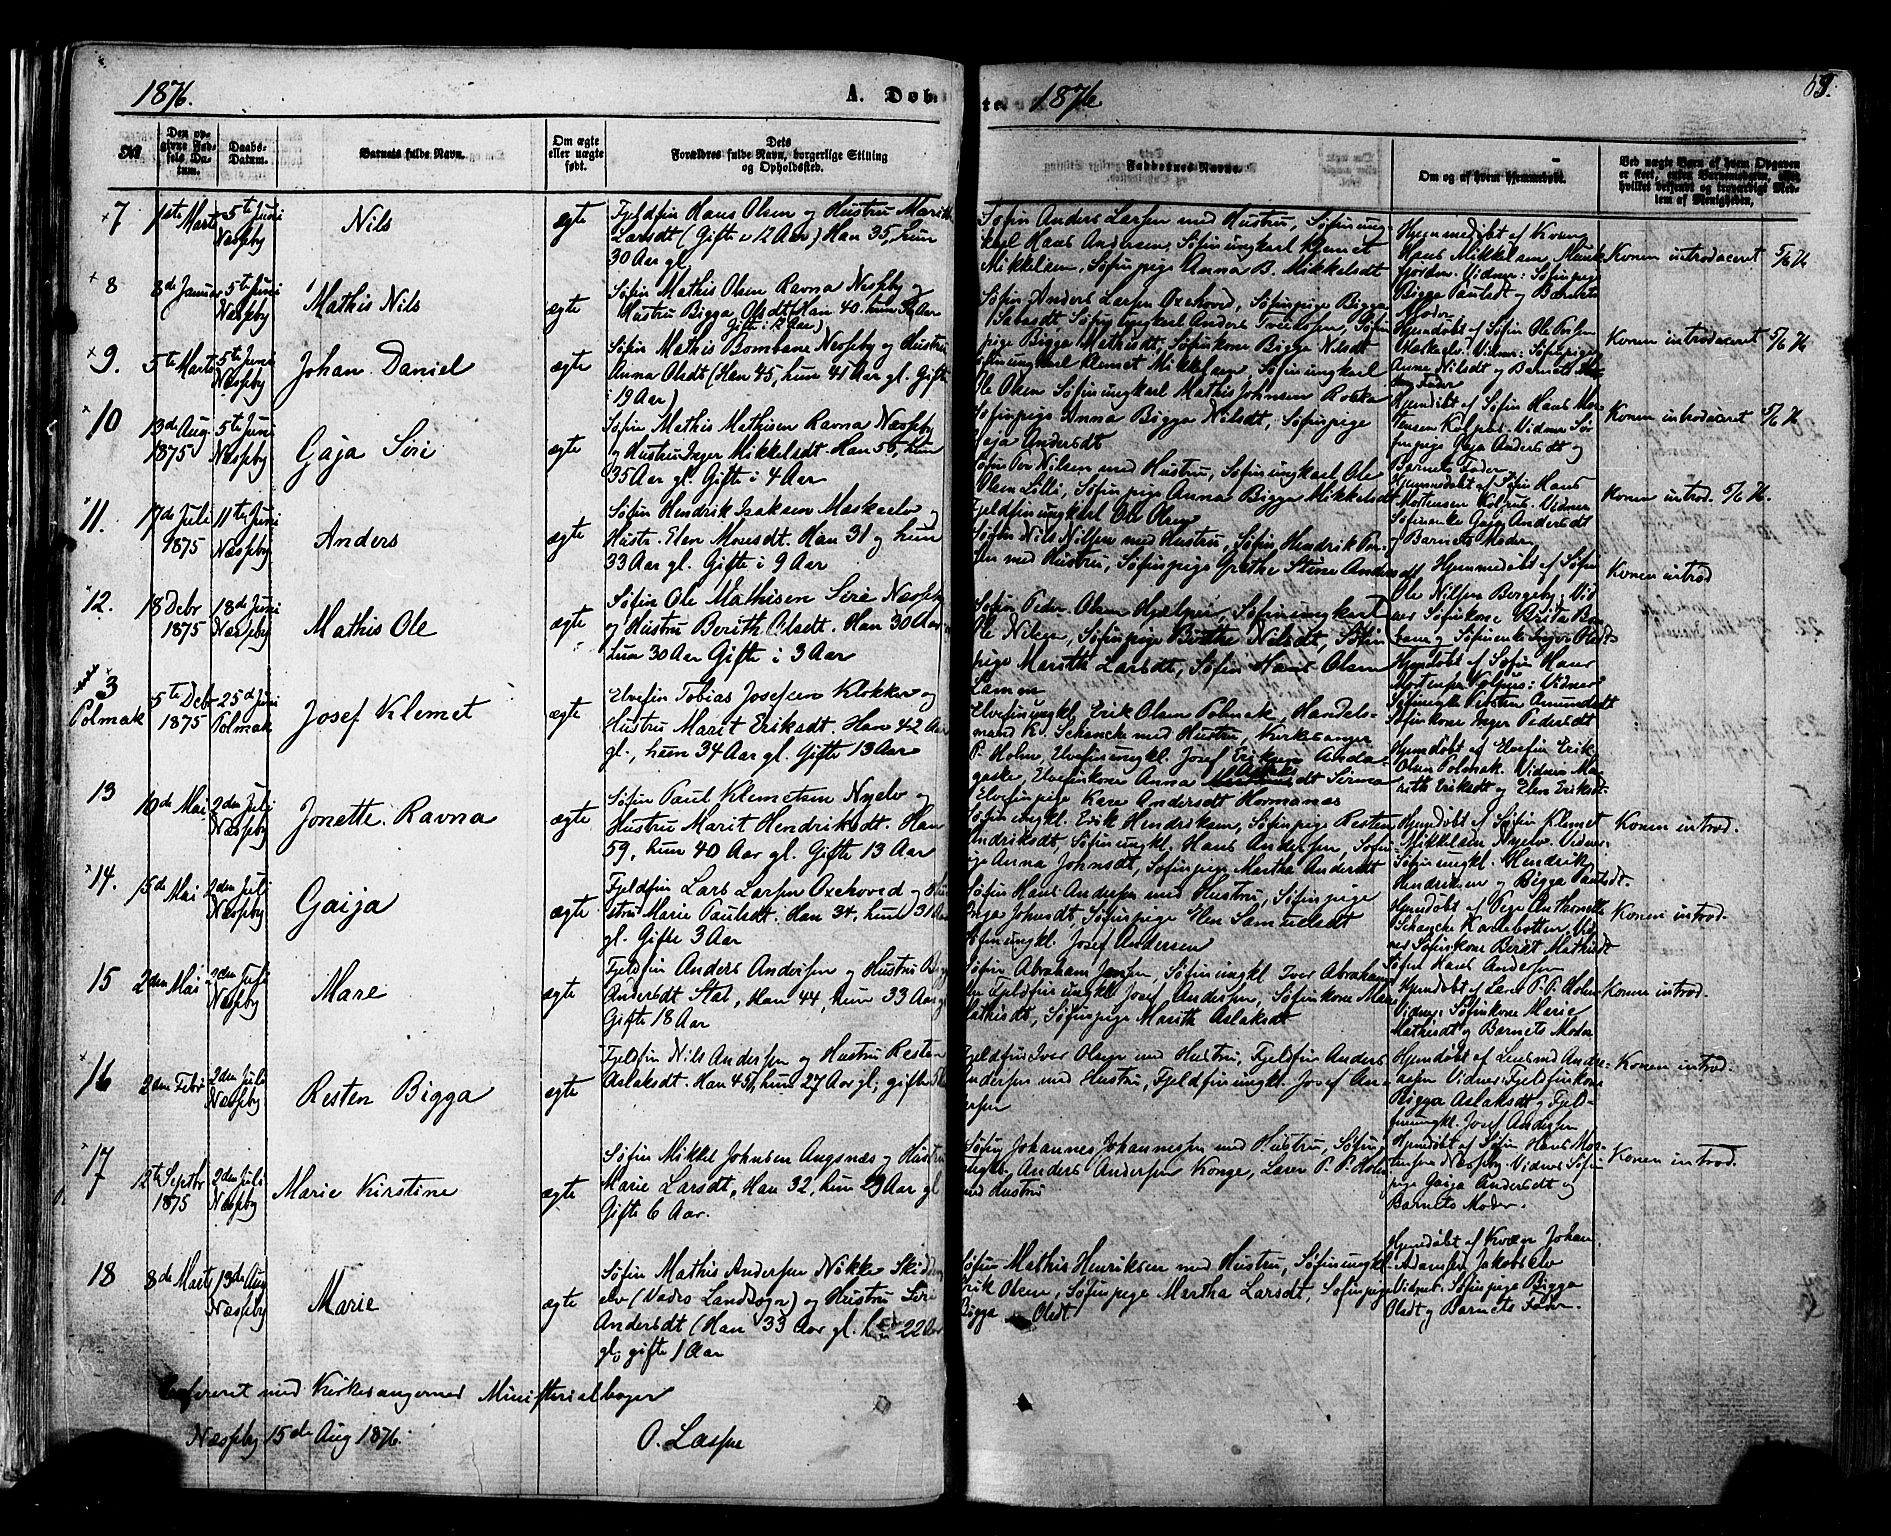 1876.
A. Døb
te 1876
69.
No
Den opgivne Fødsels Datum.
Daabs-Datum.
Barnets fulde Navn.
Om ægte eller uægte født.
Dets Forældres fulde Navn, borgerlige Stilling og Opholdssted.
Faddernes Navne.
Om og af hvem hjemmedøbt.
Ved uægte Børn af hvem Opgaven er skeet, enten Barnemoderen, eller hvilket bekjendt og troværdigt Medlem af Menigheden.
7
1ste Marts
5te Juni
Næsseby
Nils
ægte
Fjeldfin Hans Olsen og Hustru Marith
Larsdt (Gifte i 12 Aar) Han 35, hun
30 Aar gl.
Søfin Anders Larsen med Hustru, Søfinung-
karl Hans Andersen, Søfinungkarl Klemet
Mikkelsen, Søfinpige Anna B. Mikkelsdt
Hjemmedøbt af Kvæng
Hans Mikkelsen Munk-
fjorden. Vidner: Søfinpige
Bigga Paulsdt og Barnets
Moder
Konen introduceret 5/6 76
8
8de Januar
5te Juni
Næsseby
Mathis Nils
ægte
Søfin Mathis Olsen Ravna Næsseby og
Hustru Bigga Olsdt (Han 40. hun Aar
Gifte i 12 Aar)
Søfin Anders Larsen Oxehoved, Søfinpige Bigga
Søfinungkarl Anders
pige Bigga Mathisdt, Søfinkone Bigga Nilsdt
Hjemdøbt af Søfin Ole
Vidner: Søfinpige
Anne Nilsdt og Barnets
Fader
Konen introduceret 5/6 76
9.
5te Marts
5te Juni
Næsseby
Johan Daniel
ægte
Søfin Mathis Bombane Næsseby og Hustru
Anna Olsdt (Han 45, hun 41 Aar gl. Gifte
i 19 Aar)
Søfinungkarl Klemet Mikkelsen, Søfinungkarl
Ole Olsen Søfinungkarl Mathis Johnsen Roska
Søfinpige Anna Bigga Nilsdt, Søfinpige
Gaja Andersdt
Hjemdøbt af Søfin Hans Mor-
tensen Kolpus. Vidner Sø-
finpige Gaja Andersdt og
Barnets Fader
Konen introduceret 5/6 76
10
13de Aug
1875
5te Juni
Næsseby
Gaja Siri
ægte
Søfin Mathis Mathisen Ravna Næsseby
og Hustru Inger Mikkelsdt. Han 56, hun
35 Aar gl. Gifte i 4 Aar
Søfin Per Nilsen med Hustru, Søfinungkarl Ole
Olsen Lilli, Søfinpige Anna Bigga Mikkelsdt
Fjeldfinungkarl Ole Olsen
Hjemmedøbt af Søfin Hans
Mortensen Kolpus. Vidner
Søfinenke Gaja Andersdt
og Barnets Moder
Konen introd. 5/6 76.
11.
17de Juli
1875
11te Juni
Næsseby
Anders
ægte
Søfin Hendrik Isaksen Mæskelv og
Hustr. Elen Monsdt. Han 31 og hun
33 Aar gl. Gifte i 9 Aar
Søfin Nils Nilsen med Hustru, Søfin Hendrik Per-
sen med Hustru, Søfinpige Grethe Stine Andersdt
Hjemmedøbt af Søfin
Ole Nilsen Bergeby; Vid-
ner Søfinkone Brita
og Søfinenke Inger
Konen introd
12.
18 Debr
1875
18de Juni
Næsseby
Mathis Ole
ægte
Søfin Ole Mathisen Sira Næsseby
og Hustru Berith Olsdt. Han 30 Aar
hun 30 Aar Gifte i 3 Aar
Søfin Peder Olsen Hjelper, Søfinungkarl
Ole Nilsen, Søfinpige Birithe Nilsdt, Søfin-
pige Marith Larsdt, Søfin Hans Olsen
Lamm
Hjemdøbt af Søfin Hans
Mortensen Kolpus: Vidner
Søfinenke Kirsten Amundsdt
Søfinkone Inger Pedersdt
3
Polmak
5te Deb
1875
25de Juni
Polmak
Josef Klemet
ægte
Elvefin Tobias Josefsen Klokker og
Hustru Marit Eriksdt. Han 42 Aar
gl., hun 34 Aar gl. Gifte 13 Aar
Elvefinungkl. Erik Olsen Polmak, Handels-
mand K. Schancke med Hustru, Kirkesanger
P. Holm, Elvefinungkl. Josef Eriksen Anda-
gaske, Elvefinkone Anna Aslaksdt Sirma
Elvefinpige Kare Andersdt Hormanas
Hjemdøbt af Elvefin Erik
Olsen Polmak. Vidner Ma-
rith Eriksdt og Elen Eriksdt.
13
10de Mai
2den Juli
Næsseby
Jonette. Ravna
ægte
Søfin Paul Klemetsen Nyelv og
Hustru Marit Hendriksdt. Han
59, hun 40 Aar gl. Gifte 13 Aar
Søfinungkl. Erik Hendriksen, Søfinpige Resten
Andriksdt, Søfinungkl. Hans Andersen, Søfin-
pige Anna Johnsdt, Søfinpige Martha Andersdt
Hjemdøbt af Søfin Klemet
Mikkelsen Nyelv. Vidner
Søfinungkl. Hendrik
Hendriksen og Bigga Paulsdt.
Konen introd.
14.
15de Mai
2den Juli
Næsseby
Gaija
ægte
Fjeldfin Lars Larsen Oxehoved og Hu-
stru Marie Paulsdt. Han 34, hun 31 Aar
gl. Gifte 3 Aar
Søfin Hans Andersen med Hustru, Søfinpige
Inga Johnsdt, Søfinpige Elen Samuelsdt
Søfinungkl. Josef Andersen
Hjemdøbt af Pige Anthonette
Schancke Karlebotten, Vid-
ner Søfinkone Beret Mathisdt
Søfin Hans Andersen
Konen introd.
15
2den Mai
2den Juli
Næsseby
Mare
ægte
Fjeldfin Anders Andersen og Hustru Bigga
Andersdt Stal, Han 44, hun 33 Aar gl
Gifte 18 Aar
Søfin Abraham Jensen, Søfinungkl Iver Abraham-
sen Fjeldfinungkl Josef Andersen, Søfinkone Mare
Mathisdt, Søfinpige Marith Aslaksdt
Hjemdøbt af Lærer P. P. Holm
Vidner: Søfinkone Marie
Mathisdt og Barnets Moder
Konen introd.
16
2den Febr
2den Juli
Næsseby
Resten Bigga
ægte
Fjeldfin Nils Andersen og Hustru Resten
Aslaksdt. Han 45, hun 27 Aar gl, gifte
Fjeldfin Iver Olsen med Hustru, Fjeldfin Anders
Andersen med Hustru, Fjeldfinungkl. Josef An-
dersen
Hjemdøbt af Lensmd Andre-
asen Vidner: Fjeldfinkone
Bigga Aslaksdt og Fjeld-
finungkl. Josef Andersen
Konen introd.
17
12te Septbr
1875
2den Juli
Næsseby
Marie Kirstine
ægte
Søfin Mikkel Johnsen Angsnæs og Hustru
Marie Larsdt, Han 32, hun 29 Aar gl
Gifte 6 Aar.
Søfin Johannes Johannessen med Hustru, Søfin-
ungkl. Anders Andersen Konge, Lærer P. P. Holm
med Hustru
Hjemdøbt af Søfin Hans Mor-
tensen Næsseby. Vidner Søfin
pige Gaija Andersdt og
Barnets Moder.
Konen introd.
18
8de Marts
13de Aug
Næsseby
Marie
ægte
Søfin Mathis Andersen Nøkke Skidden
elv (Vadsø Landsogn) og Hustru Siri
Andersdt (Han 33 Aar gl. hun 22 Aar
gl, gifte 1 Aar
Søfin Mathis Henriksen med Hustru, Søfinungkl.
Erik Olsen, Søfinpige Martha Larsdt, Søfinpige
Bigga Olsdt.
Hjemdøbt af Kvæn Johan
Adamsen Jakobselv
Vidner: Søfinpige Bigga
Olsdt og Barnets Fader.
Confereret med Kirkesangernes Ministerialbøger
Næsseby 15de Aug 1876.
O. Larsen